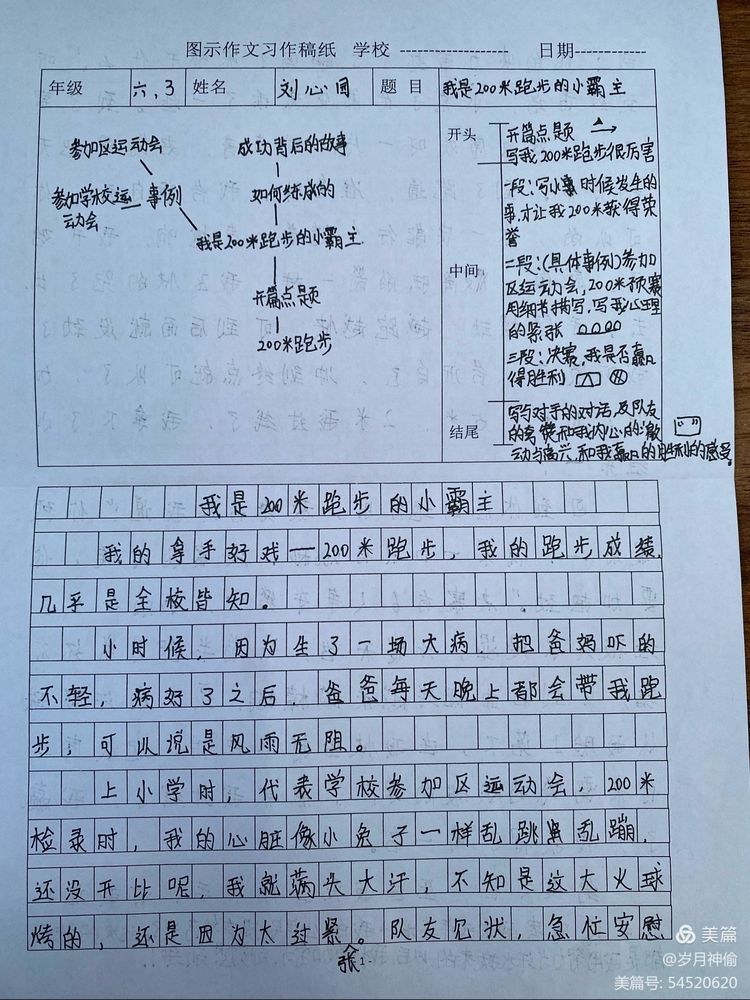 图示作文习作稿纸 学校 ------------------- 日期------------
年级 六、3 姓名 刘心闻 题目 我是200米跑步的小霸主
参加区运动会
参加学校运动会
事例
成功背后的故事
如何练成的
我是200米跑步的小霸主
开篇点题
200米跑步
开头
开篇点题
写我200米跑步很厉害
中间
一段:写小时候发生的
事,才让我200米获得荣
誉
二段:(具体事例)参加
区运动会,200米预赛
用细节描写,写我心理
的紧张
三段:决赛,我是否赢
得胜利
结尾
写与对手的对话,及队友
的夸赞和我内心的激
动与高兴,和我赢的胜利的感受。
我是200米跑步的小霸主
我的拿手好戏一200米跑步,我的跑步成绩
几乎是全校皆知。
小时候,因为生了一场大病,把爸妈吓的
不轻,病好了之后,爸爸每天晚上都会带我跑
步,可以说是风雨无阻。
上小学时,代表学校参加区运动会,200米
检录时,我的心脏像小兔子一样乱跳乱蹦,
还没开比呢,我就满头大汗,不知是这大火球
烤的,还是因为太过紧张。队友见状,急忙安慰
1
美篇
@岁月神偷
美篇号: 54520620